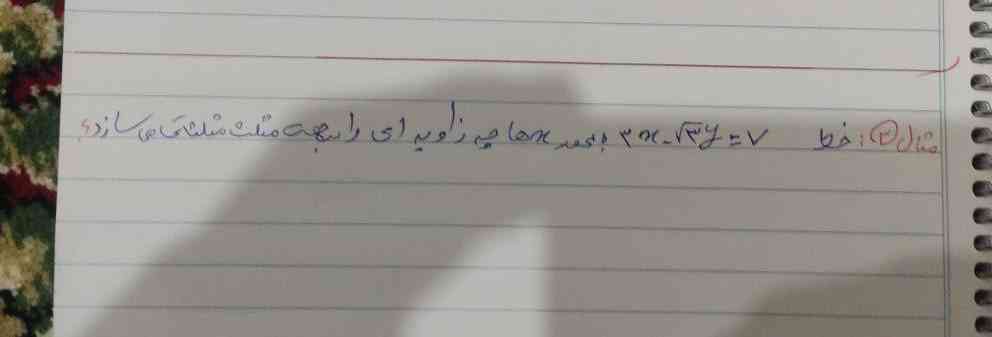 مثال ②: خط ۳x - √۳y = ۷ با محور xها چه زاویه ای را در جهت مثلث مثلثاتی می سازد؟